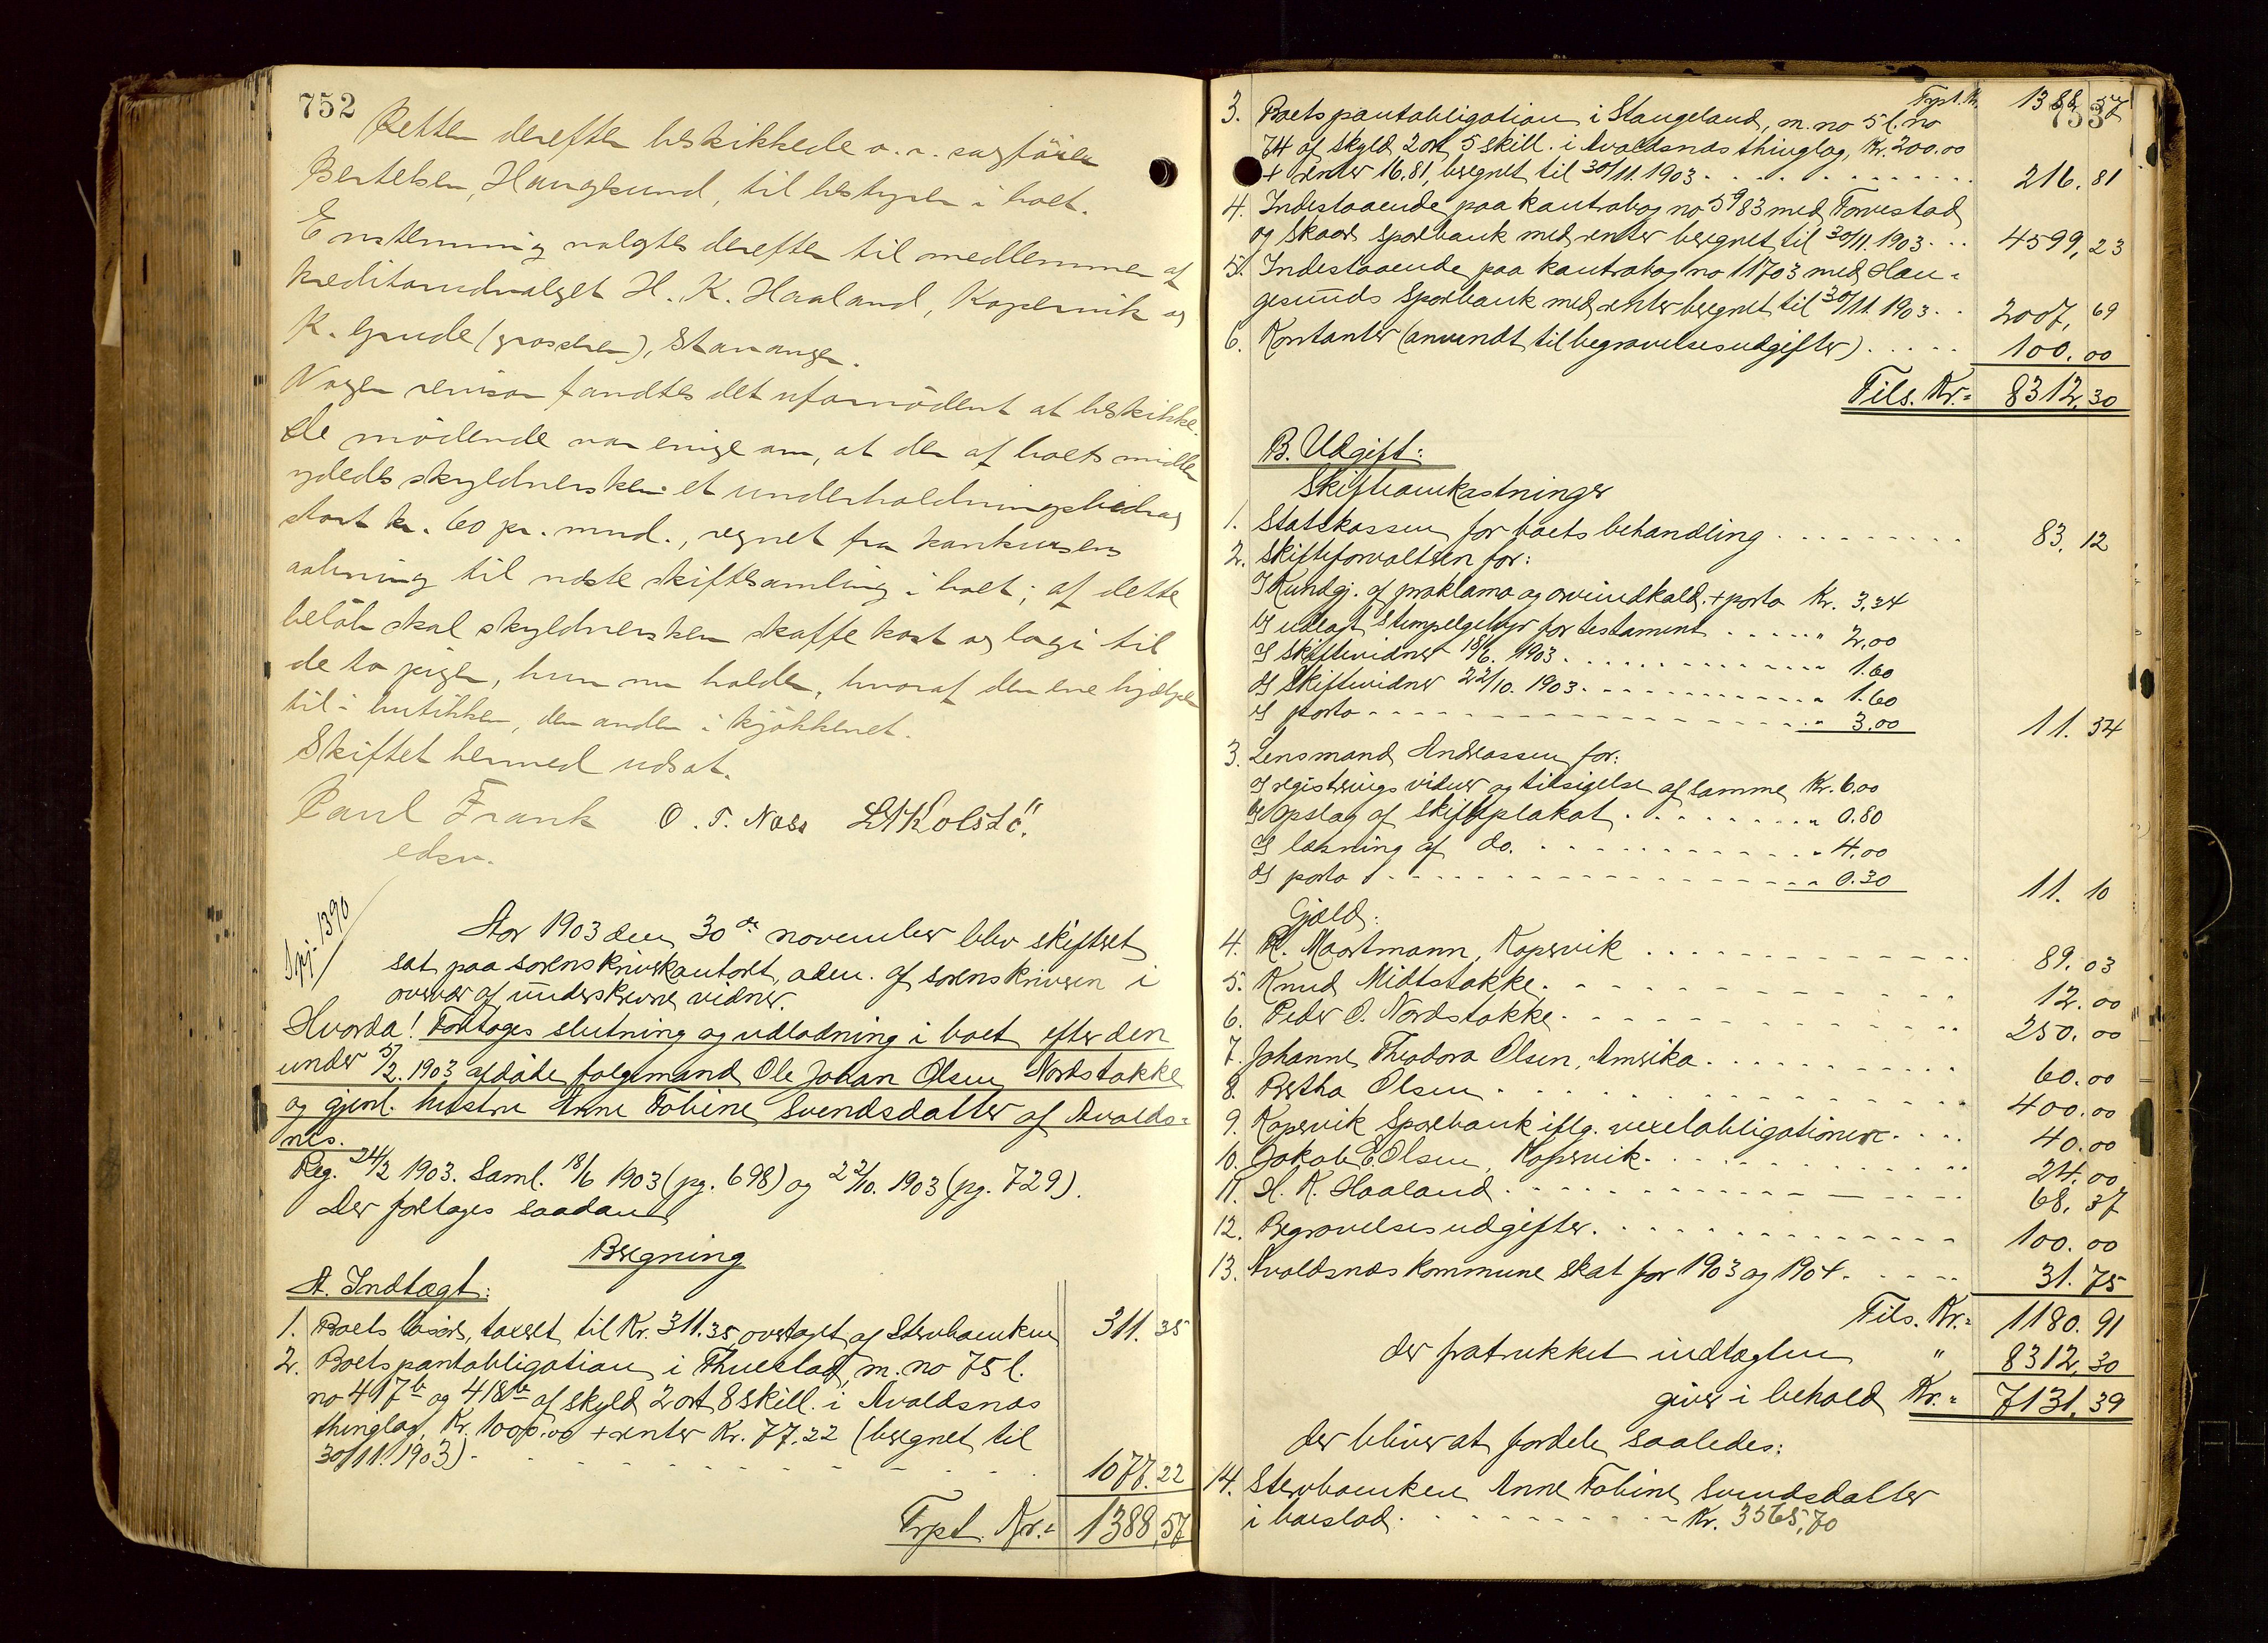 752
Retten derefter beskikkede o. r. sagfører
Bertelsen, Haugesund, til bestyrer i boet.
Enstemmig valgtes derefter til medlemmer af
kreditorudvalget H. K. Haaland, Kopervik og
K. Grude (grosserer), Stavanger.
Nogen revisor fandtes det ufornødent at beskikke.
De mødende var enige om, at der af boets midler
ydedes skyldnersken et underholdningsbidrag
stort kr. 60 pr. mnd., regnet fra konkursens
aabning til næste skiftesamling i boet; af dette
beløb skal skyldnersken skaffe kost og logi til
de to piger, hun nu holder, hvoraf den ene hjælper
til i butikken, den anden i kjøkkenet.
Skiftet hermed udsat.
Paul Frank O. T. Næss L A Kolstø.
edsv.
Spj. 1390
Aar 1903 den 30de november blev skifteret
sat paa sorenskriverkontoret, adm. af sorenskriveren i
overvær af underskrevne vidner.
Hvorda! Foretoges slutning og udlodning i boet efter den
under 5/2. 1903 afdøde folgemand Ole Johan Olsen Nordstokke
og gjenl. hustru Anne Tobine Svendsdatter af Avalds-
nes.
Reg. 24/2 1903. Saml. 18/6 1903 (pg. 698) og 22/10. 1903 (pg. 729).
Der foretoges saadan
Beregning
A. Indtægt:
1. Boets løsøre, taxeret til Kr. 311.35 overtaget af Stervboenken 311.35
2. Boets pantobligation i Thuestad, m. no 75 l.
no 417b og 418b af skyld 2 ort 8 skill. i Avaldsnæs
thinglag, Kr. 1000.00 + renter Kr. 77.22 (beregnet til
30/11. 1903) 1077.22
Trpt. Kr.= 1388,57
753
Trpt. Kr. 1388,57
3. Boets pantobligation i Stangeland, m. no 5 l. no
74 af skyld 2 ort 5 skill. i Avaldsnæs thinglag, Kr. 200.00
+ renter 16.81, beregnet til 30/11. 1903 216.81
4. Indestaaende paa kontrabog no 5983 med Torvestad
og Skaare sparebank med renter beregnet til 30/11. 1903 4599,23
5. Indestaaende paa kontrabog no 11703 med Hau-
gesunds Sparebank med renter beregnet til 30/11. 1903 2007,69
6. Kontanter (anvendt til begravelsesudgifter) 100.00
Tils. Kr.= 8312,30
B. Udgift:
Skifteomkostninger
1. Statskassen for boets behandling 83.12
2. Skifteforvalteren for:
a) Kundgj. af proklama og arveindkald. + porto Kr. 3,34
b) udlagt Stempelgebyr for testament " 2,00
c) Skiftevidner 18/6. 1903 " 1.60
d) Skiftevidner 22/10. 1903 " 1.60
e) porto " 3.00 11.34
3. Lensmand Andreassen for:
a) registrerings vidner og tilsigelse af samme Kr. 6.00
b) Opslag af skifteplakat " 0.80
c) læsning af do. " 4.00
d) porto " 0.30 11.10
Gjæld:
4. R. Maartmann, Kopervik 89.03
5. Knud Midtstokke 12.00
6. Peder O. Nordstokke 250.00
7. Johanne Theodora Olsen, Amerika 60.00
8. Bertha Olsen 400.00
9. Kopervik Sparebank iflg. vexelobligationer 40.00
10. Jakob E Olsen, Kopervik 24.00
11. H. K. Haaland 68.37
12. Begravelsesudgifter 100.00
13. Avaldsnæs kommune skat for 1903 og 1904 31.75
Tils. Kr.= 1180.91
der fratrukket indtægten " 8312,30
giver i behold Kr.= 7131,39
der bliver at fordele saaledes:
14. Stervboenken Anne Tobine Svendsdatter
i boeslod Kr. 3565,70